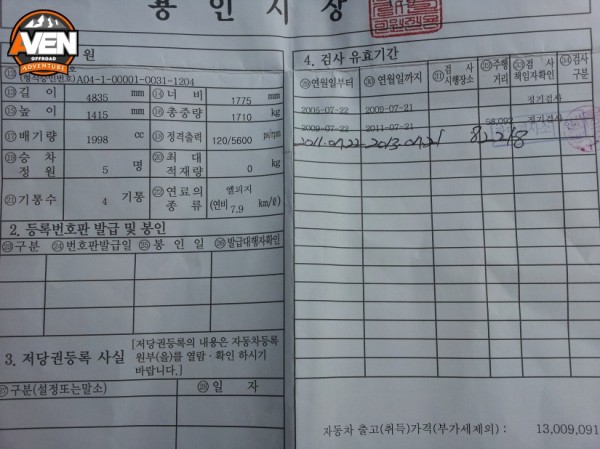 AVEN
OFFROAD
ADVENTURE
용 인 시 장
원
4. 검사 유효기간
(형식승인번호) A04-1-00001-0031-1204
⑬ 길 이 4835 mm ⑭ 너 비 1775 mm
⑮ 높 이 1415 mm ⑯ 총중량 1710 kg
⑰ 배기량 1998 cc ⑱ 정격출력 120/5600 ps/rpm
⑲ 승 차 정 원 5 명 ⑳ 최 대 적재량 0 kg
㉑ 기통수 4 기통 ㉒ 연료의 종 류 엘피지 (연비 7.9 km/ℓ)
2. 등록번호판 발급 및 봉인
㉓ 구 분 ㉔ 번호판발급일 ㉕ 봉 인 일 ㉖ 발급대행자확인
3. 저당권등록 사실
[저당권등록의 내용은 자동차등록
원부(을)를 열람 · 확인 하시기
바랍니다.]
㉗ 구분(설정또는말소) ㉘ 일 자
㉙ 연월일부터 ㉚ 연월일까지 ㉛ 검 사 시행장소 ㉜ 주행 거리 ㉝ 검 사 책임자확인 ㉞ 검사 구분
2005-07-22 2009-07-21 정기검사
2009-07-22 2011-07-21 58,092 정기검사
2011.07.22 2013.07.21 82218
자동차 출고(취득)가격(부가세제외) : 13,009,091